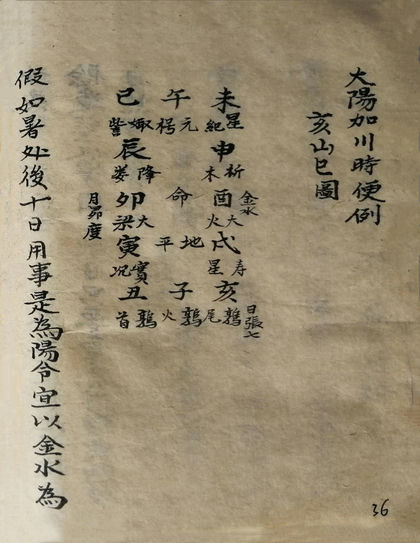 大陽加川時便例
亥山巳圖
金水
日張七
未星紀申析木酉大火戌寿星亥鶉尾
午元枵命地平子鶉火
巳娵訾辰降婁卯大梁寅實况丑鶉首
月昴度
假如暑处後十日用事是為陽令宜以金水為
36